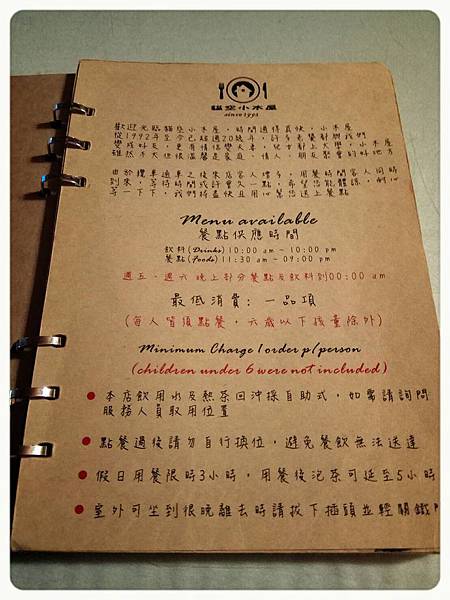 貓空小木屋
since 1992
歡迎光臨貓空小木屋,時間過得真快,小木屋
從1992年至今已超過20幾年,許多老饕幫我們
變成好友,更有情侶變夫妻,兒女都上大學,小木屋
雖然不大但很溫馨是家庭、情人、朋友聚會的好地方
由於纜車通車之後來店客人增多,用餐時間客人同時
到來,等待時間或許會久一點,希望您能體諒,耐心
等一下下,我們將盡快且用心幫您送上餐點
Menu available
餐點供應時間
飲料(Drinks) 10:00 am ~ 10:00 pm
餐點(Foods) 11:30 am ~ 09:00 pm
週五、週六晚上部分餐點及飲料到00:00 am
最低消費:一品項
(每人皆須點餐,六歲以下孩童除外)
Minimum Charge 1order p/person
(children under 6 were not included)
● 本店飲用水及熱茶回沖採自助式,如需請詢問
服務人員取用位置
● 點餐過後請勿自行換位,避免餐飲無法送達
● 假日用餐限時3小時,用餐後泡茶可延至5小時
● 室外可坐到很晚離去時請拔下插頭並輕關鐵